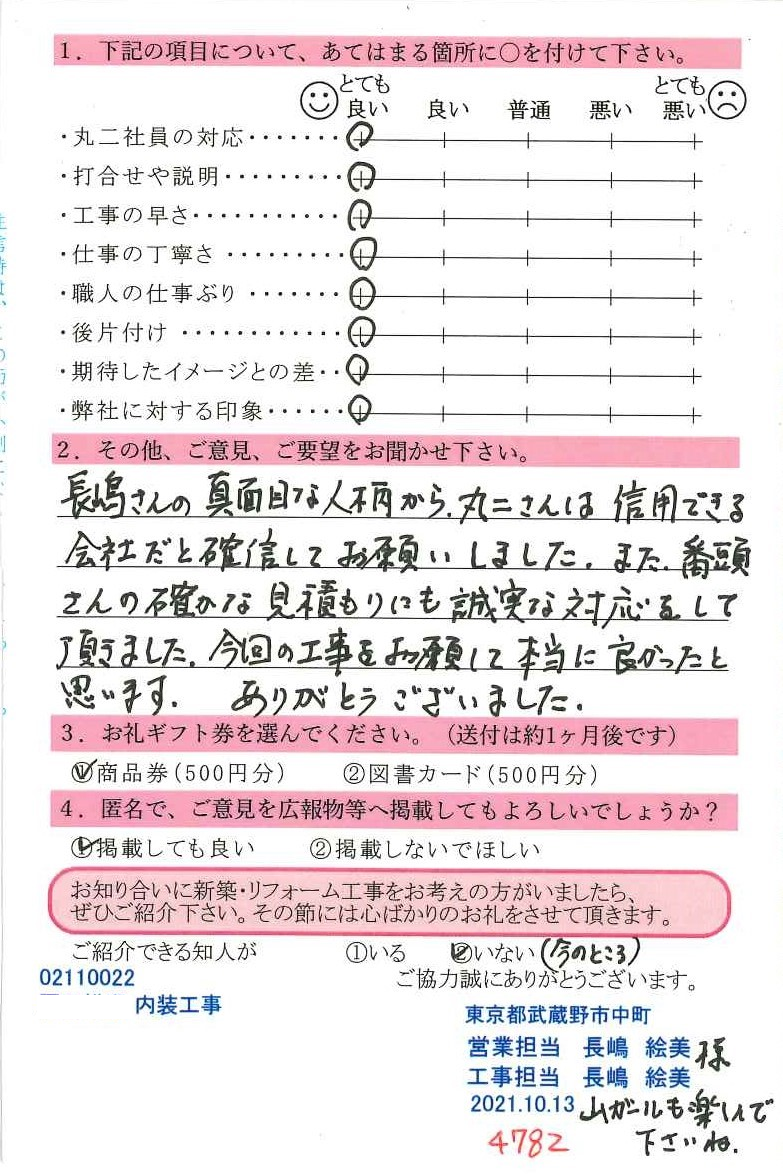 1．下記の項目について、あてはまる箇所に○を付けて下さい。
とても良い 良い 普通 悪い とても悪い
・丸二社員の対応・・・・・・・
・打合せや説明・・・・・・・・・
・工事の早さ・・・・・・・・・・・
・仕事の丁寧さ・・・・・・・・・
・職人の仕事ぶり・・・・・・・
・後片付け・・・・・・・・・・・・
・期待したイメージとの差・・
・弊社に対する印象・・・・・・
2．その他、ご意見、ご要望をお聞かせ下さい。
長嶋さんの真面目な人柄から、丸二さんは信用できる
会社だと確信してお願いしました。また、番頭
さんの確かな見積もりにも誠実な対応をして
頂きました。今回の工事をお願して本当に良かったと
思います。ありがとうございました。
3．お礼ギフト券を選んでください。（送付は約1ヶ月後です）
①商品券（500円分） ②図書カード（500円分）
4．匿名で、ご意見を広報物等へ掲載してもよろしいでしょうか？
①掲載しても良い ②掲載しないでほしい
お知り合いに新築・リフォーム工事をお考えの方がいましたら、
ぜひご紹介下さい。その節には心ばかりのお礼をさせて頂きます。
ご紹介できる知人が ①いる ②いない（今のところ）
ご協力誠にありがとうございます。
02110022
内装工事
東京都武蔵野市中町
営業担当 長嶋 絵美 様
工事担当 長嶋 絵美
2021.10.13
山ガールも楽しんで
下さいね。
4782